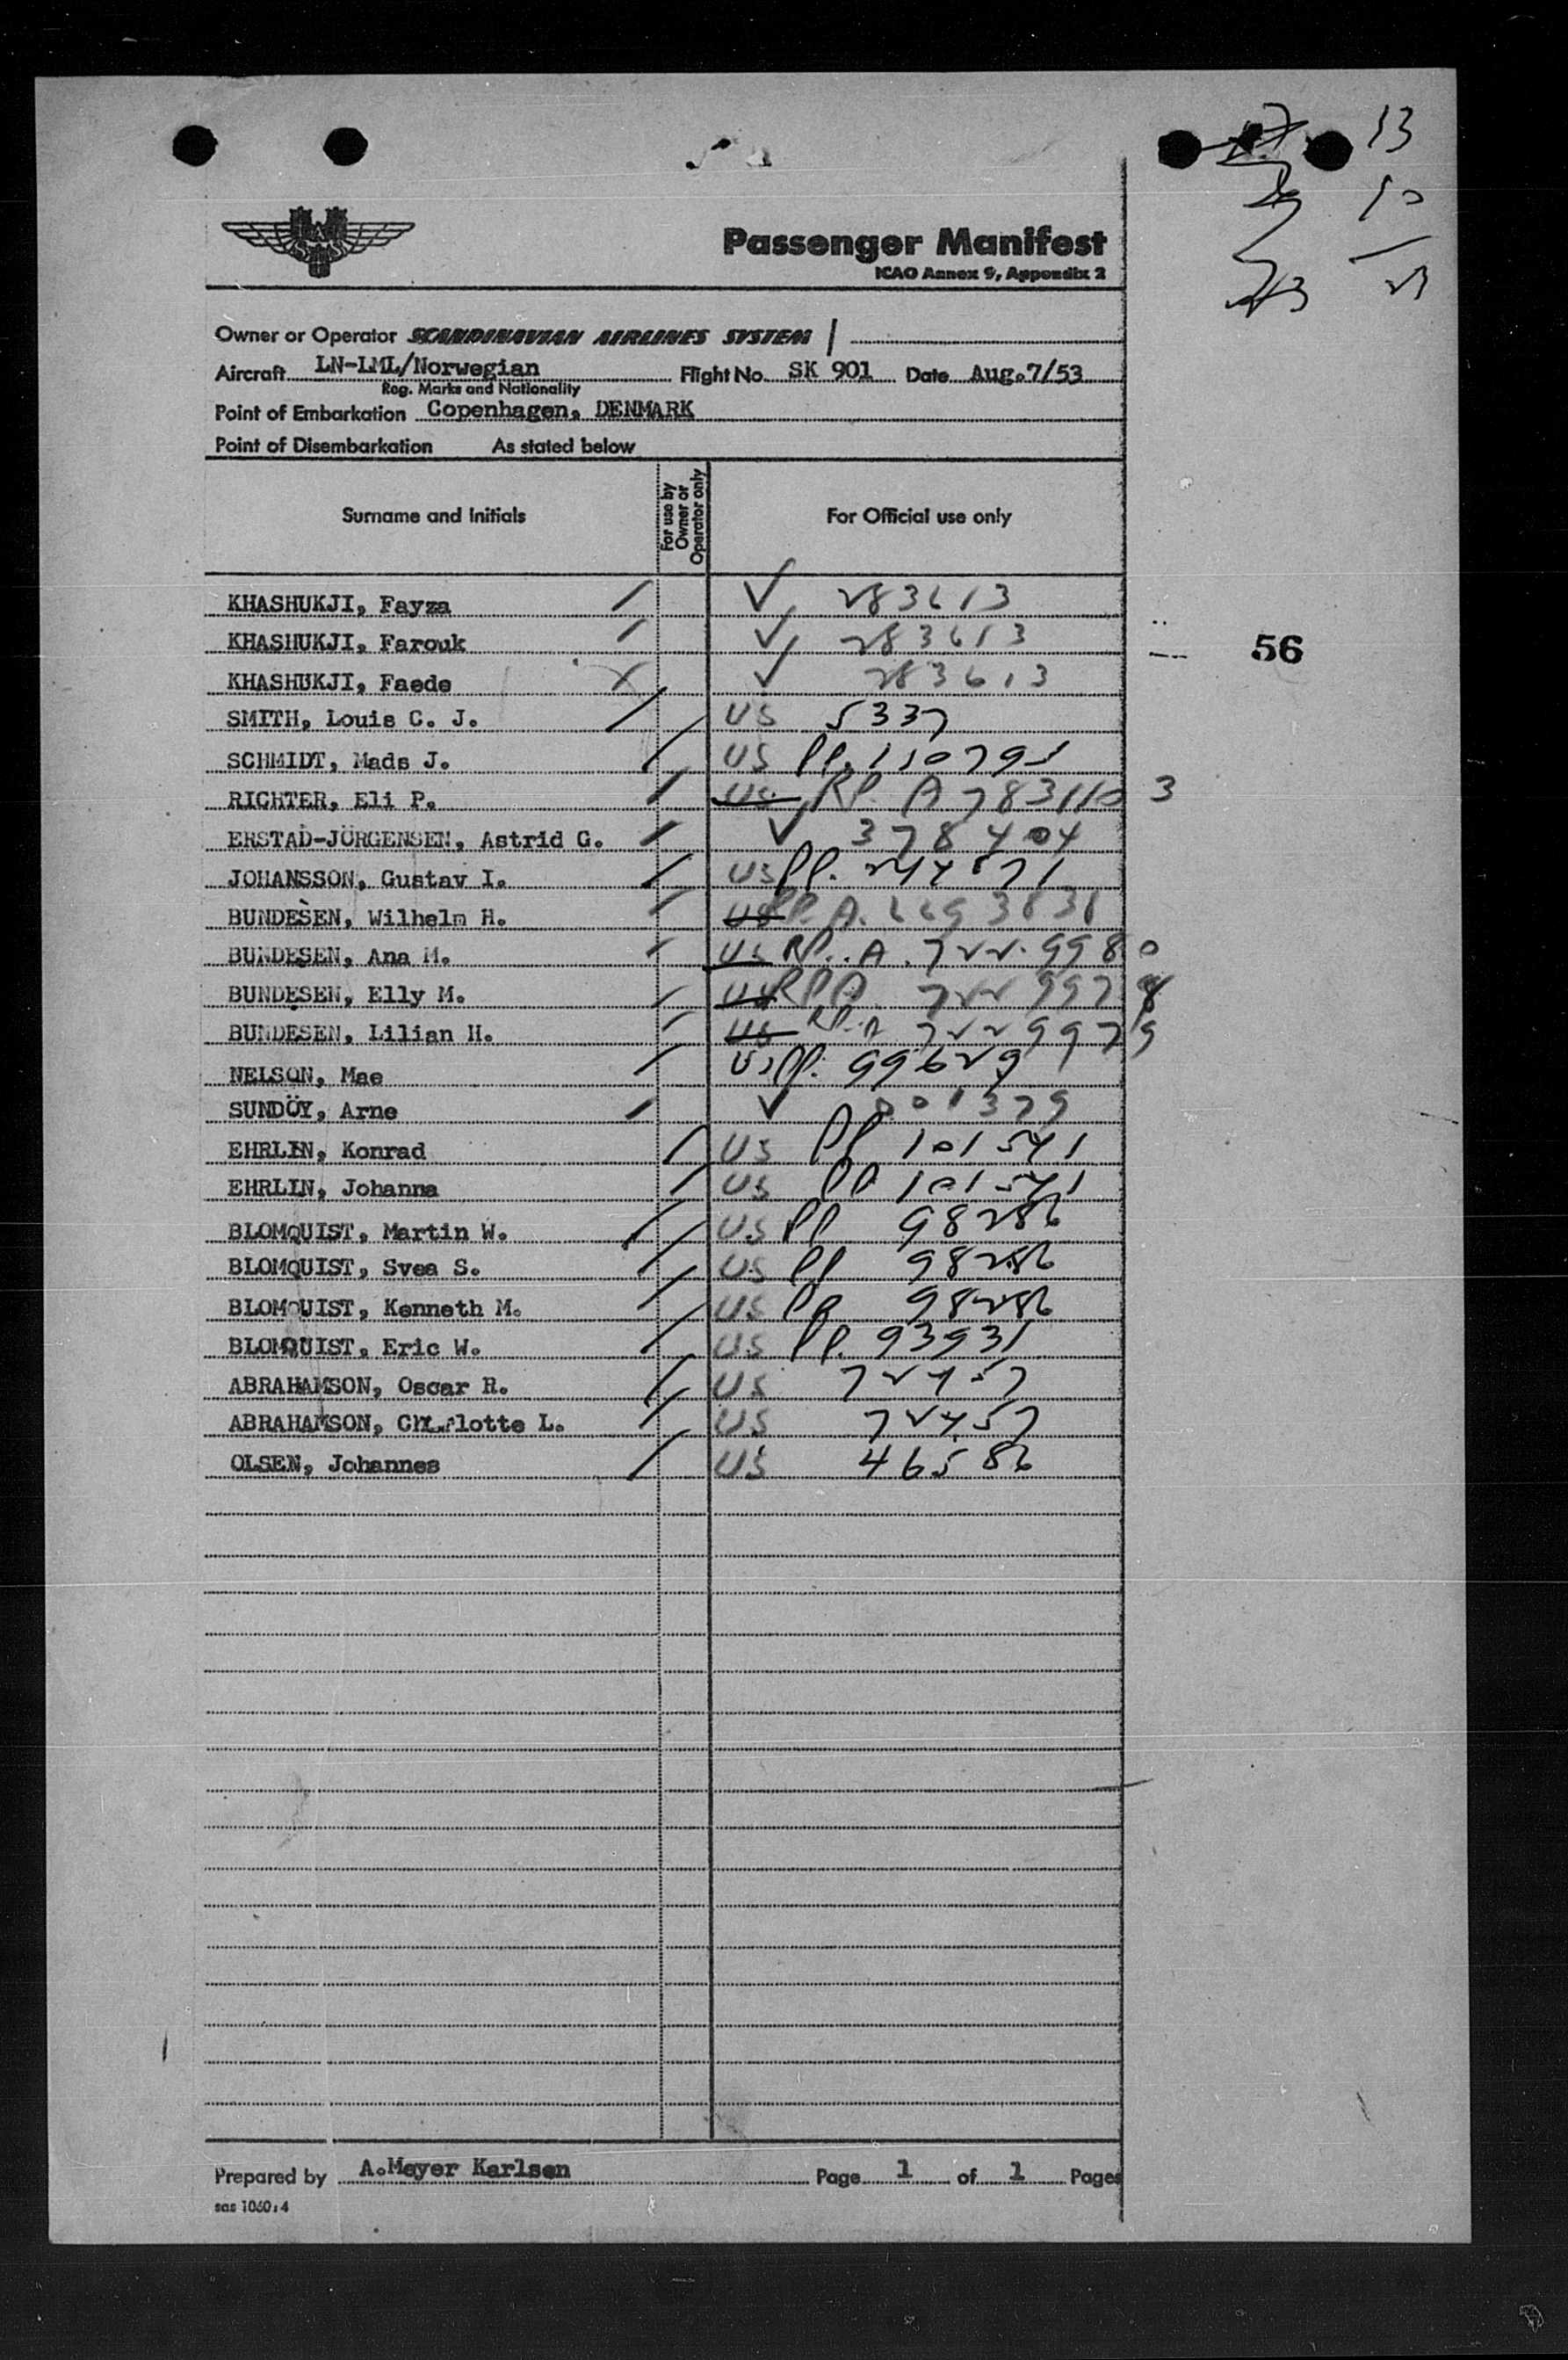 13
10
23
Passenger Manifest
ICAO Annex 9, Appendix 2
Owner or Operator SCANDINAVIAN AIRLINES SYSTEM
Aircraft LN-LML/Norwegian Flight No. SK 901 Date Aug.7/53
Reg. Marks and Nationality
Point of Embarkation Copenhagen, DENMARK
Point of Disembarkation As stated below
Surname and Initials For use by Owner or Operator only For Official use only
KHASHUKJI, Fayza / ✓ 283613
KHASHUKJI, Farouk / ✓ 283613
56
KHASHUKJI, Faede X ✓ 283613
SMITH, Louis C. J. / US 5337
SCHMIDT, Mads J. / US PP. 110795
RICHTER, Eli P. / US RP. A 7831103
ERSTAD-JÖRGENSEN, Astrid G. / ✓ 378404
JOHANSSON, Gustav I. / US PP.
BUNDESEN, Wilhelm H. / US RP. A.
BUNDESEN, Ana M. / US RP. A. 7229980
BUNDESEN, Elly M. / US RP A 7229978
BUNDESEN, Lilian H. / US RP. A 7229979
NELSON, Mae / US PP. 99629
SUNDÖY, Arne / ✓ 001379
EHRLIN, Konrad / US PP 101541
EHRLIN, Johanna / US PP 101541
BLOMQUIST, Martin W. / US PP 98286
BLOMQUIST, Svea S. / US PP 98286
BLOMQUIST, Kenneth M. / US PP 98286
BLOMQUIST, Eric W. / US PP. 93931
ABRAHAMSON, Oscar R. / US 72457
ABRAHAMSON, Charlotte L. / US 72457
OLSEN, Johannes / US 46586
Prepared by A.Meyer Karlsen Page 1 of 1 Pages
sas 1060:4